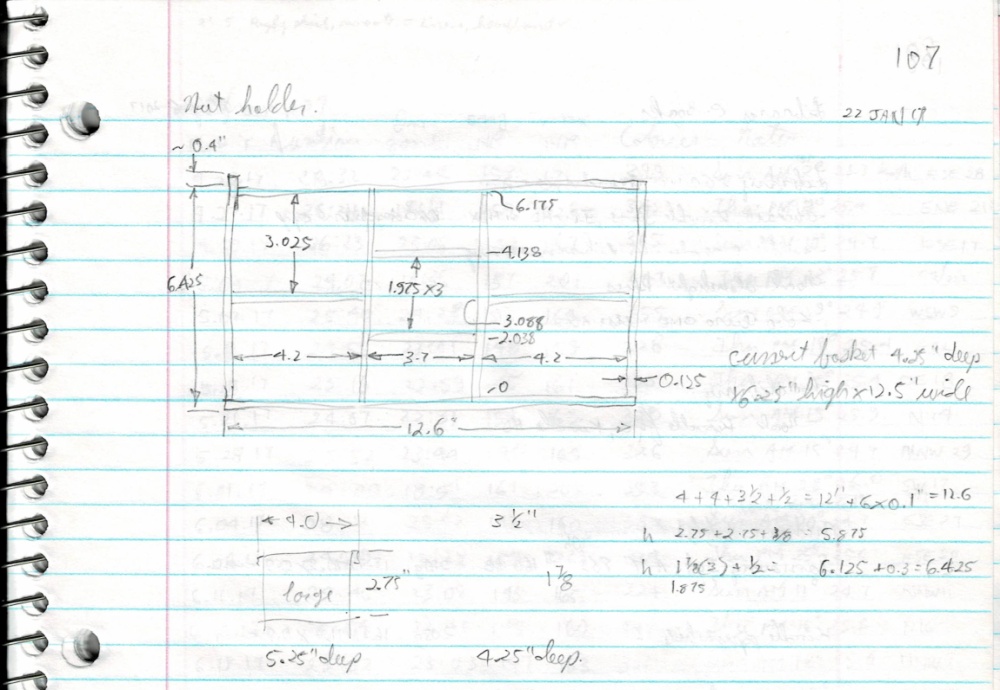 107
Nut holder.
22 JAN 17
~ 0.4"
6.175
3.025
4.138
6.425
1.975 x 3
3.088
2.038
4.2
3.7
4.2
current basket 4.25" deep
0
0.125
x 6.25" high x 12.5" wide
12.6"
4 + 4 + 3 1/2 + 1/2 = 12" + 6 x 0.1" = 12.6
4.0
3 1/2"
h 2.75 + 2.75 + 3/8 = 5.875
2.75"
1 7/8
h 1 7/8 (3) + 1/2 = 6.125 + 0.3 = 6.425
1.875
large
5.25" deep
4.25" deep.